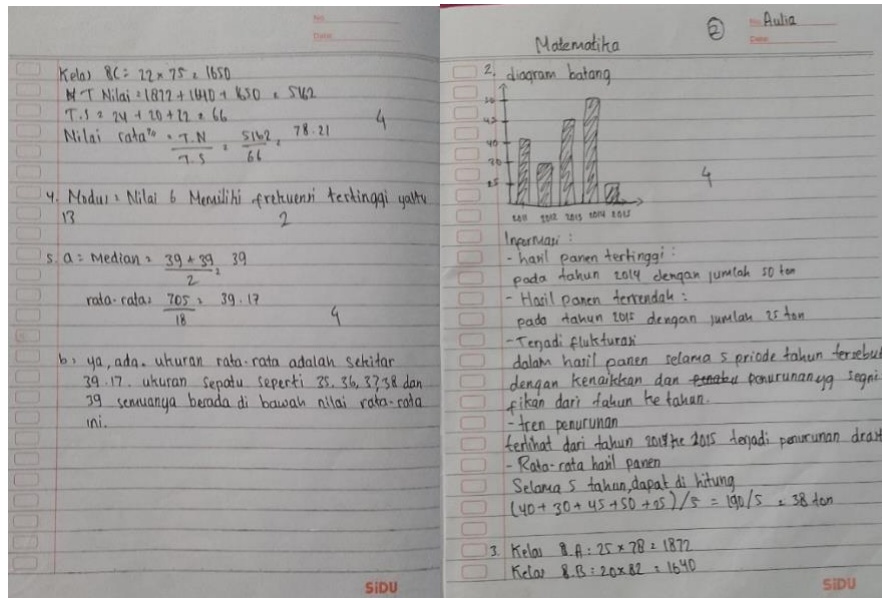 No:
Date:
Kelas 8C = 22 x 75 = 1650
T Nilai = 1872 + 1640 + 1650 = 5162
T.S = 24 + 20 + 22 = 66
Nilai rata² = T.N / T.S = 5162 / 66 = 78.21
4
4. Modus = Nilai 6 Memilihi frekuensi tertinggi yaitu
13
2
5. a = Median = 39 + 39 / 2 = 39
rata-rata = 705 / 18 = 39.17
4
b = ya, ada. ukuran rata-rata adalah sekitar
39.17. ukuran sepatu seperti 35, 36, 37, 38 dan
39 semuanya berada di bawah nilai rata-rata
ini.
SiDU
No: Aulia
Date:
2
Matematika
2. diagram batang
50
45
40
30
25
2011 2012 2013 2014 2015
4
Informasi :
- hasil panen tertinggi :
pada tahun 2014 dengan jumlah 50 ton
- Hasil panen terendah :
pada tahun 2015 dengan jumlah 25 ton
- Terjadi flukturasi
dalam hasil panen selama 5 priode tahun tersebut
dengan kenaikkan dan penurunan yg segni
fikan dari tahun ke tahun.
- tren penurunan
terlihat dari tahun 2014 ke 2015 terjadi penurunan drast
- Rata-rata hasil panen
Selama 5 tahun, dapat di hitung
(40 + 30 + 45 + 50 + 25) / 5 = 190/5 = 38 ton
3. Kelas 8.A : 25 x 78 = 1872
Kelas 8.B : 20 x 82 = 1640
SiDU